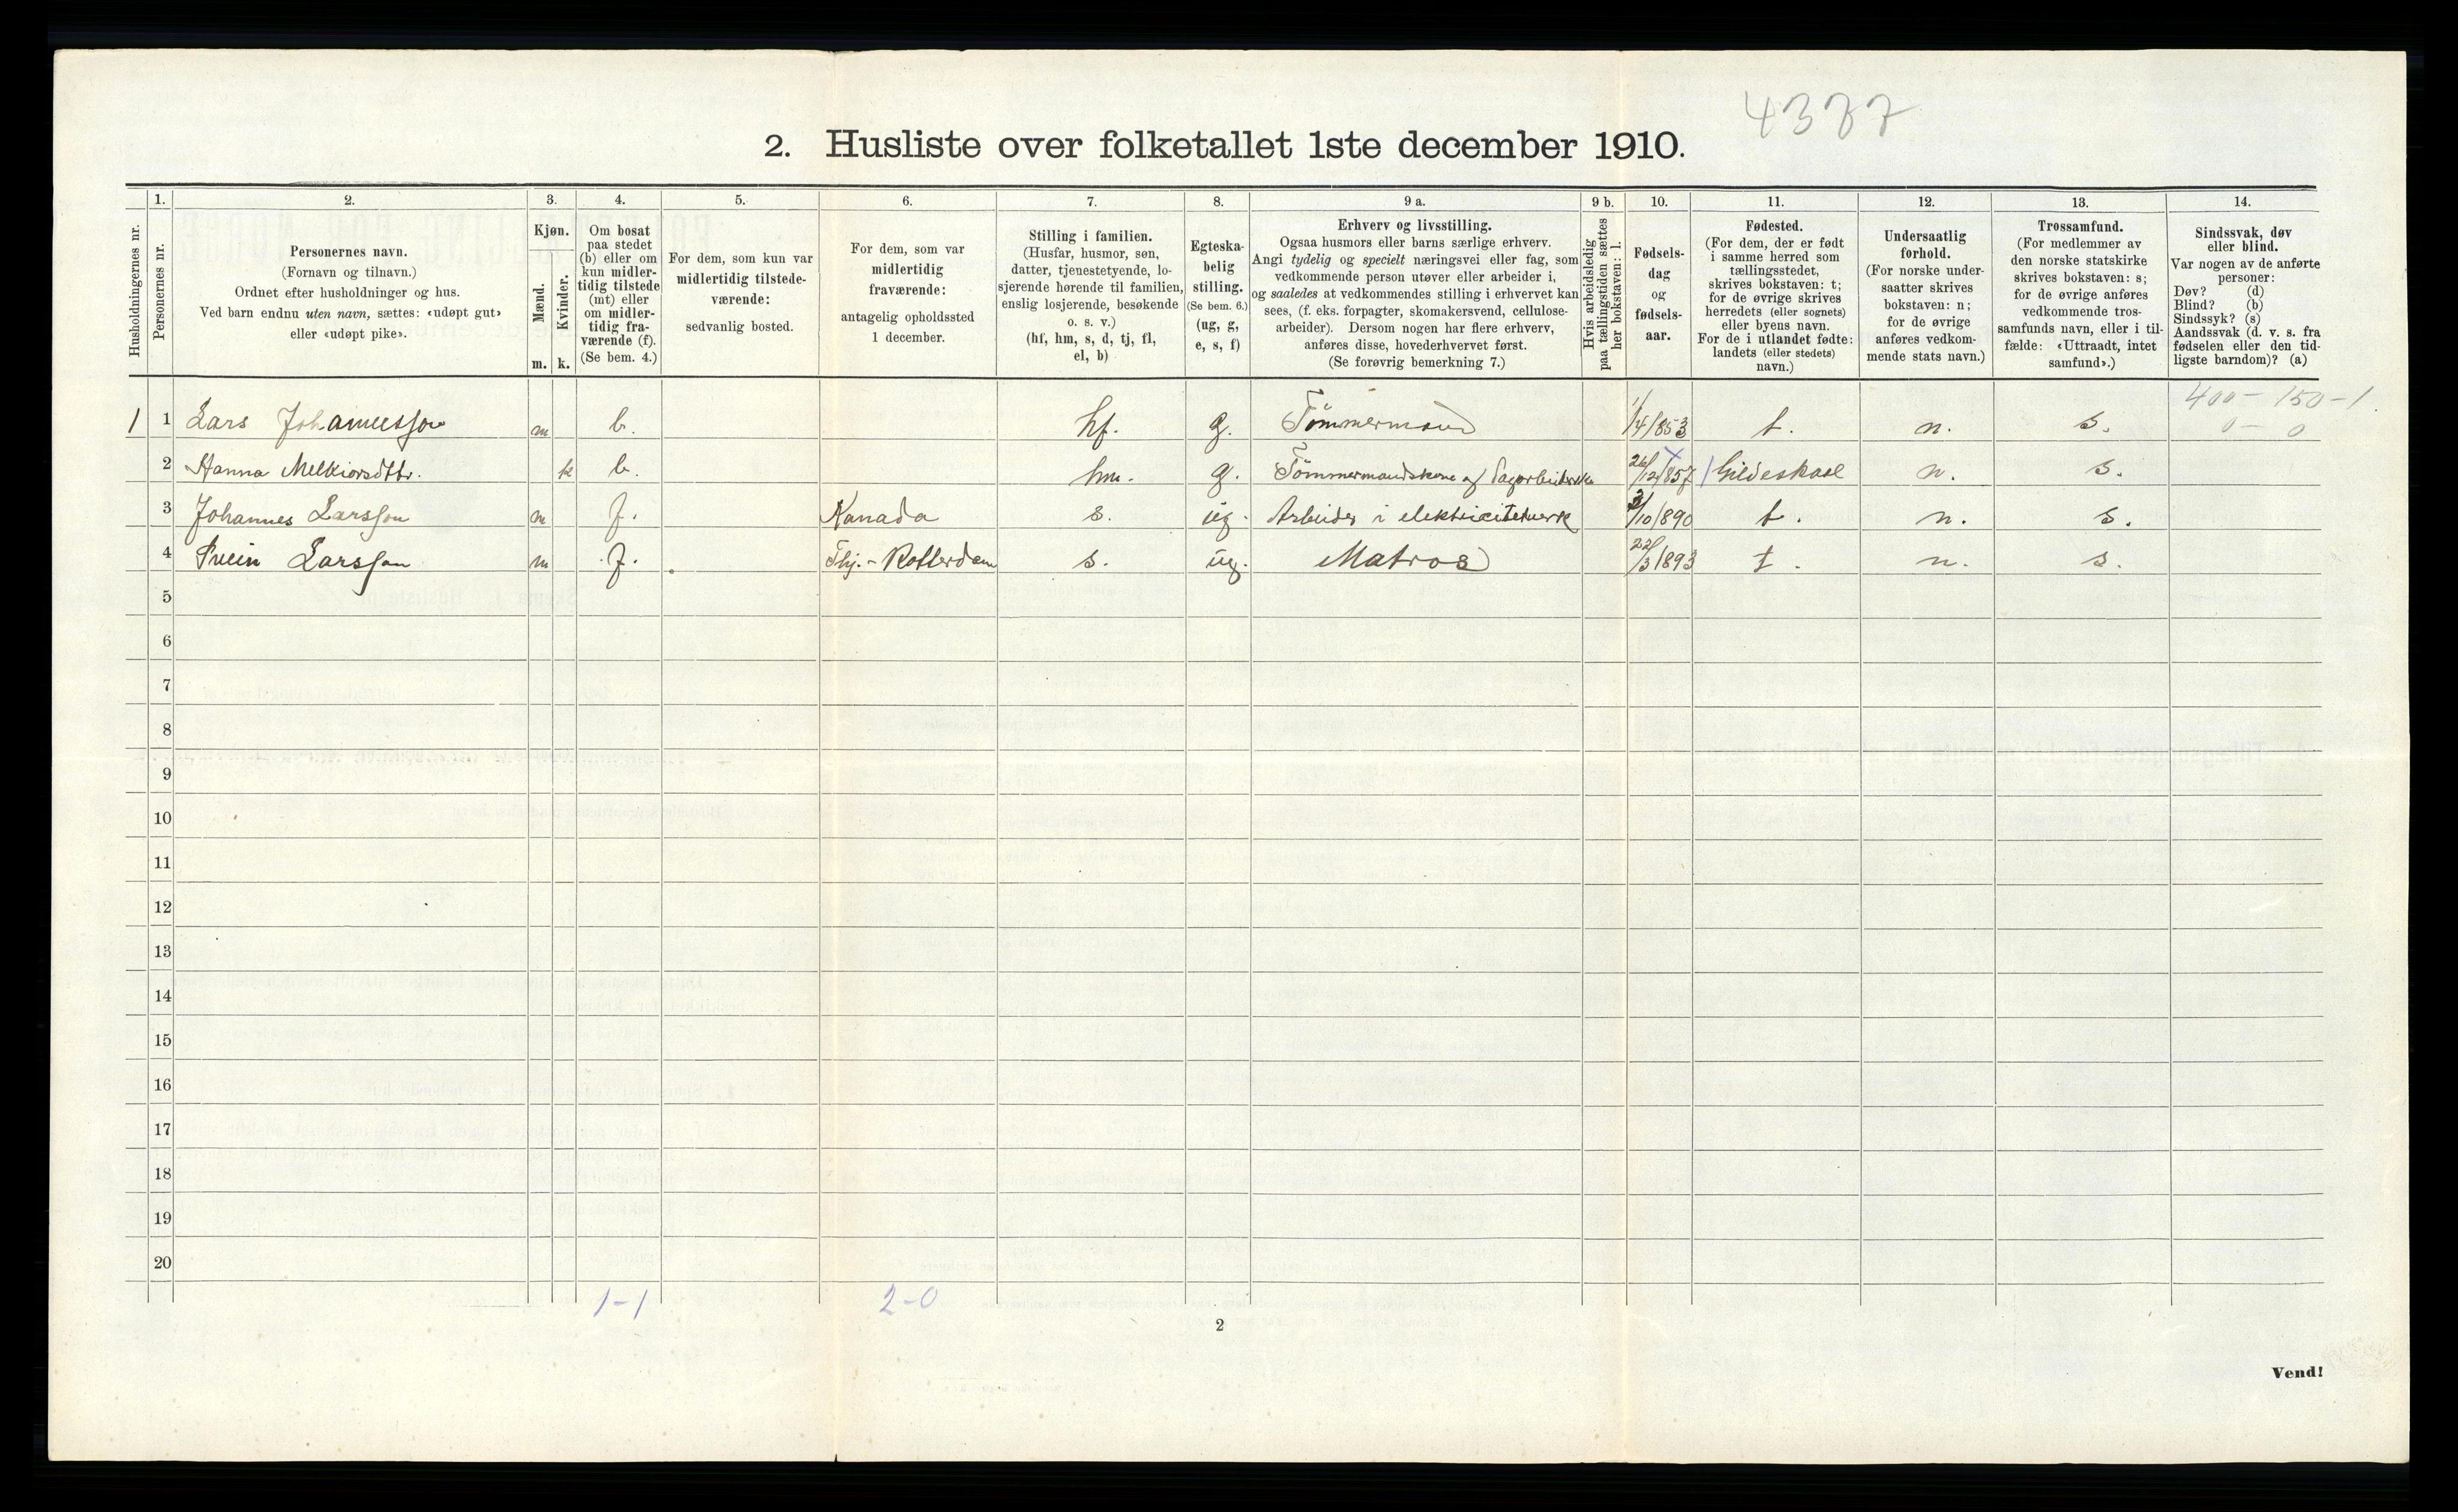 4377
2. Husliste over folketallet 1ste december 1910.
Husholdningernes nr.
1.
Personernes nr.
2.
Personernes navn.
(Fornavn og tilnavn.)
Ordnet efter husholdninger og hus.
Ved barn endnu uten navn, sættes: «udøpt gut»
eller «udøpt pike».
3.
Kjøn.
Mænd.
m.
Kvinder.
k.
4.
Om bosat
paa stedet
(b) eller om
kun midler-
tidig tilstede
(mt) eller
om midler-
tidig fra-
værende (f).
(Se bem. 4.)
5.
For dem, som kun var
midlertidig tilstede-
værende:
sedvanlig bosted.
6.
For dem, som var
midlertidig
fraværende:
antagelig opholdssted
1 december.
7.
Stilling i familien.
(Husfar, husmor, søn,
datter, tjenestetyende, lo-
sjerende hørende til familien,
enslig losjerende, besøkende
o. s. v.)
(hf, hm, s, d, tj, fl,
el, b)
8.
Egteska-
belig
stilling.
(Se bem. 6.)
(ug, g,
e, s, f)
9 a.
Erhverv og livsstilling.
Ogsaa husmors eller barns særlige erhverv.
Angi tydelig og specielt næringsvei eller fag, som
vedkommende person utøver eller arbeider i,
og saaledes at vedkommendes stilling i erhvervet kan
sees, (f. eks. forpagter, skomakersvend, cellulose-
arbeider). Dersom nogen har flere erhverv,
anføres disse, hovederhvervet først.
(Se forøvrig bemerkning 7.)
9 b.
Hvis arbeidsledig
paa tællingstiden sættes
her bokstaven: l.
10.
Fødsels-
dag
og
fødsels-
aar.
11.
Fødested.
(For dem, der er født
i samme herred som
tællingsstedet,
skrives bokstaven: t;
for de øvrige skrives
herredets (eller sognets)
eller byens navn.
For de i utlandet fødte:
landets (eller stedets)
navn.)
12.
Undersaatlig
forhold.
(For norske under-
saatter skrives
bokstaven: n;
for de øvrige
anføres vedkom-
mende stats navn.)
13.
Trossamfund.
(For medlemmer av
den norske statskirke
skrives bokstaven: s;
for de øvrige anføres
vedkommende tros-
samfunds navn, eller i til-
fælde: «Uttraadt, intet
samfund».)
14.
Sindssvak, døv
eller blind.
Var nogen av de anførte
personer:
Døv? (d)
Blind? (b)
Sindssyk? (s)
Aandssvak (d. v. s. fra
fødselen eller den tid-
ligste barndom)? (a)
400 - 150 - 1
0 - 0
1 1 Lars Johannesson m b. hf. g. Tömmermand 1/4/853 t. n. s.
2 Hanna Melkiorsdttr. k b. hm. g. 26/12/857 Gildeskaal n. s.
3 Johannes Larsson m f. Kanada s. ug. Arbeider i elektricitetverk /10/890 t. n. s.
4 Svein Larsson m f. - Rotterdam s. ug. Matros 22/3/893 t. n. s.
5
6
7
8
9
10
11
12
13
14
15
16
17
18
19
20
1-1 2-0
2
Vend!